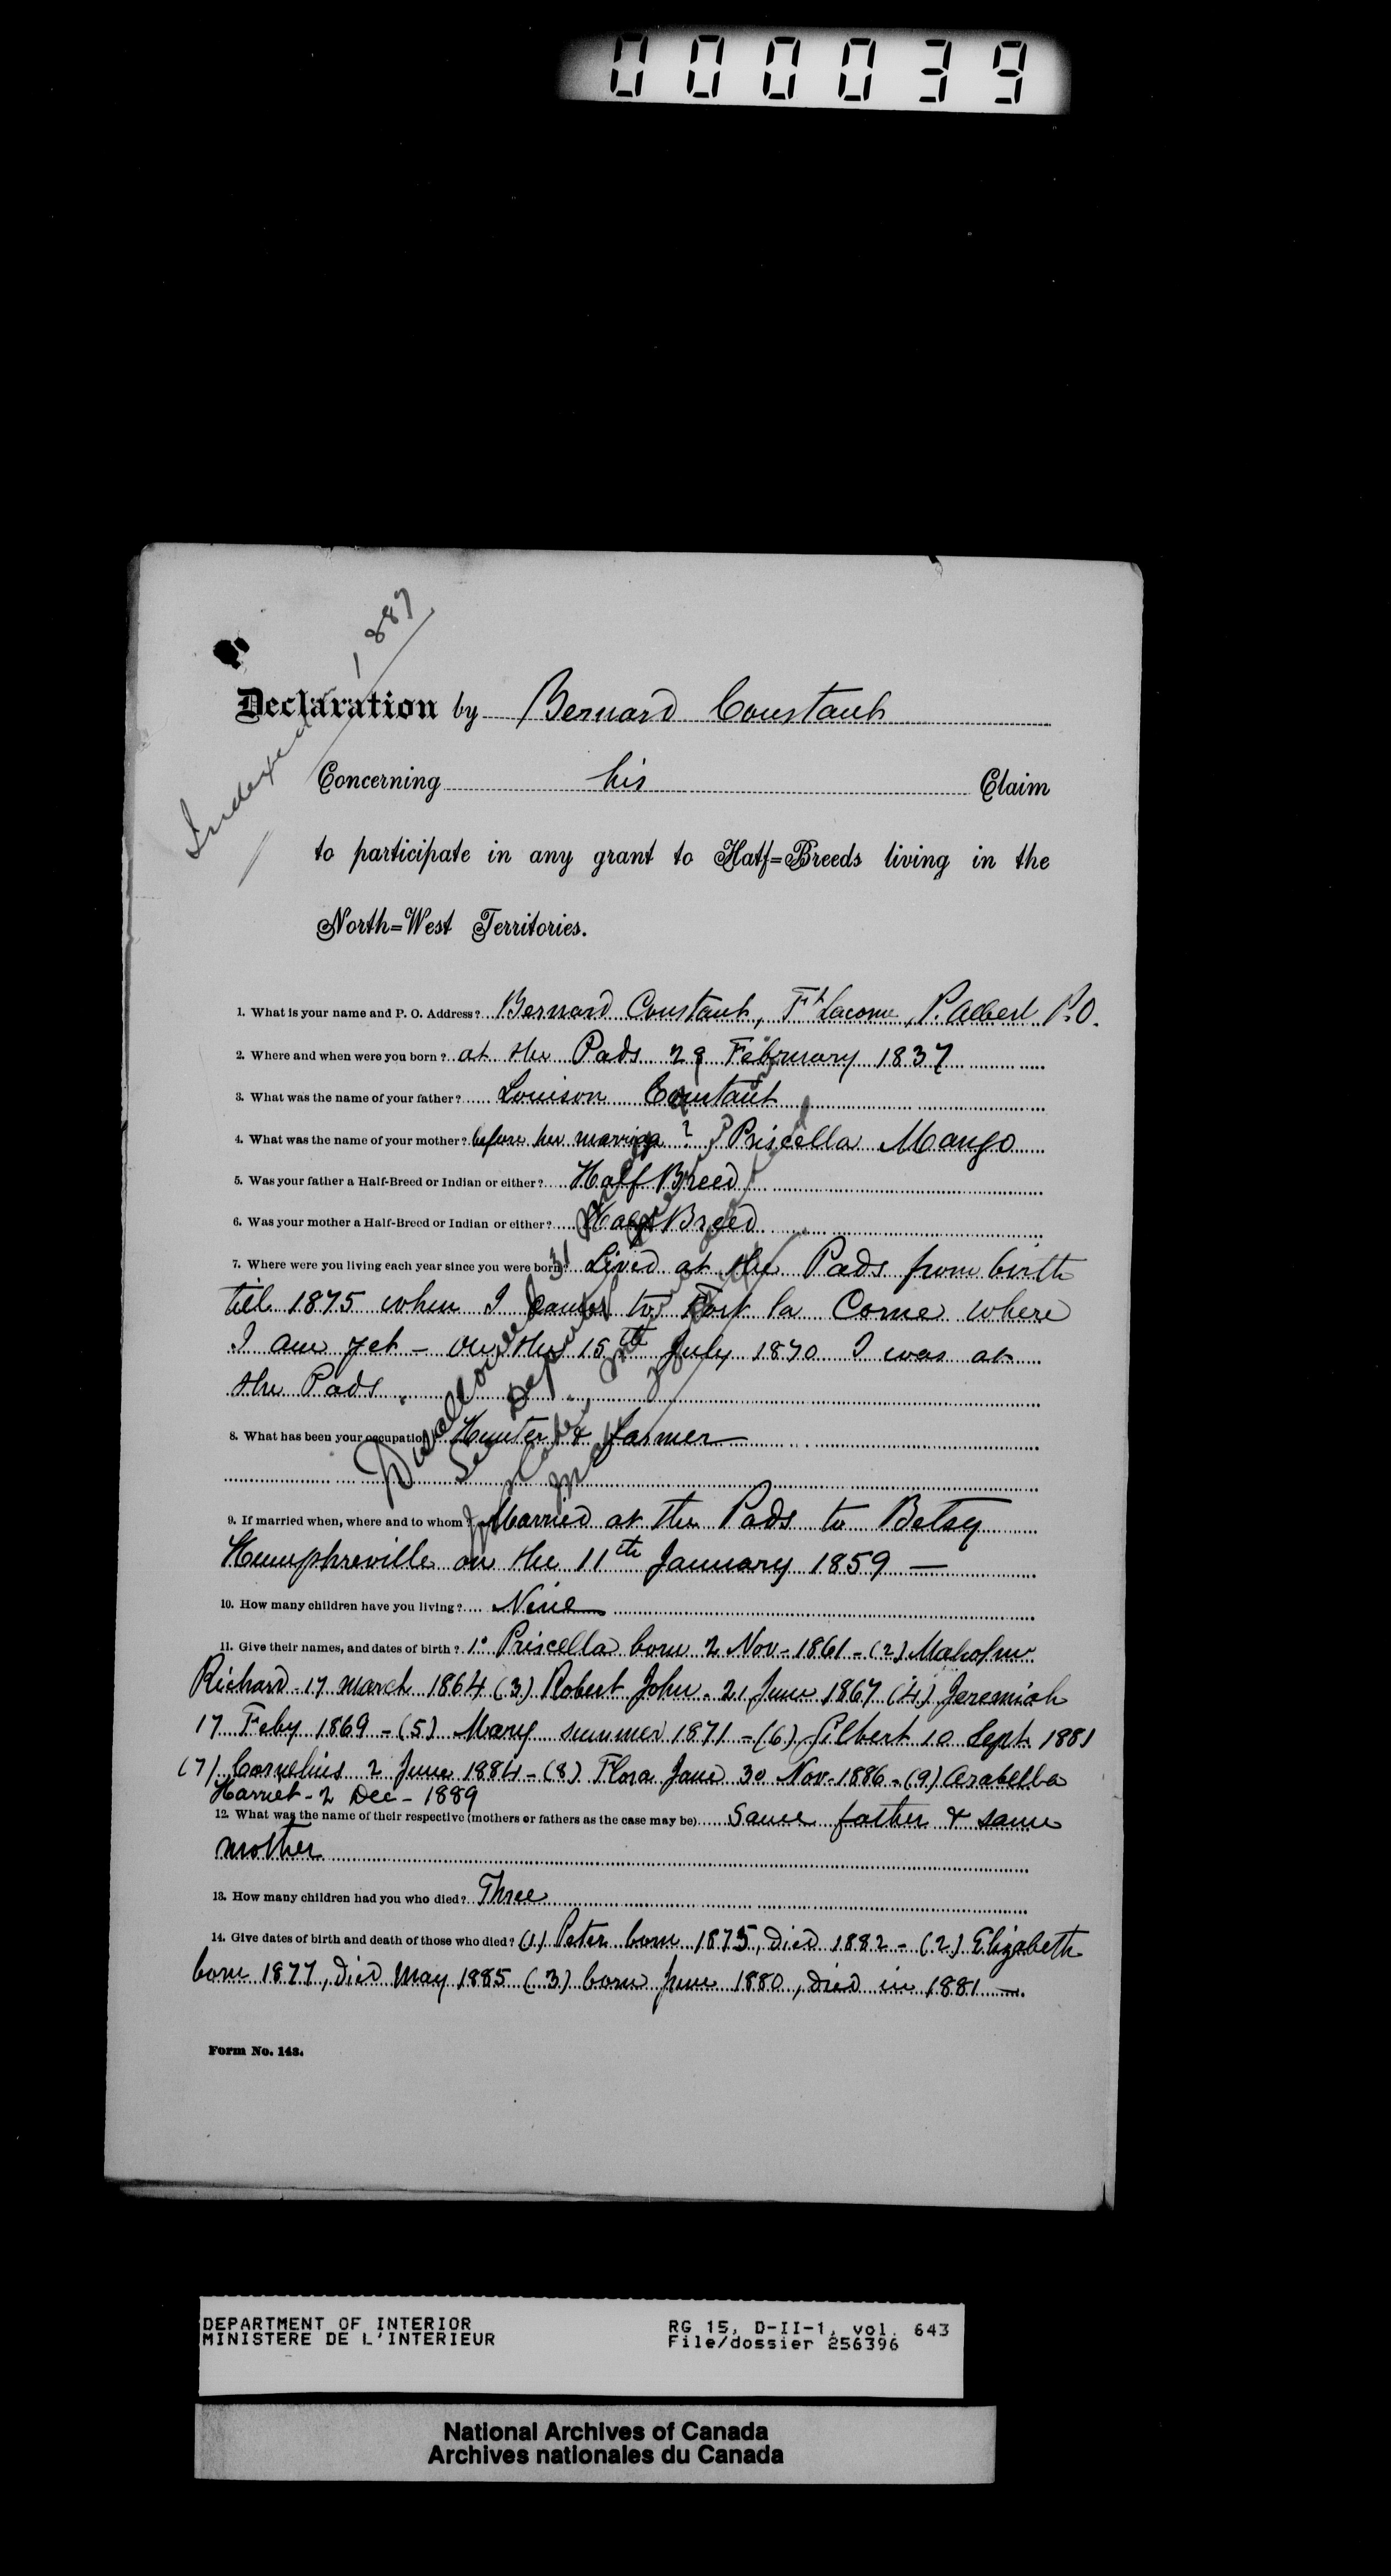 000039
Indexed 1887
Declaration by Bernard Constant
Concerning his Claim
to participate in any grant to Half=Breeds living in the
North=West Territories.
1. What is your name and P. O. Address? Bernard Constant, Ft Lacorne, P. Albert P.O.
2. Where and when were you born? at the Pads 28 February 1837
3. What was the name of your father? Louison Constant
4. What was the name of your mother? before her marriage? Priscella Mango
5. Was your father a Half-Breed or Indian or either? Half Breed
6. Was your mother a Half-Breed or Indian or either? Half Breed
7. Where were you living each year since you were born? Lived at the Pads from birth
till 1875 when I came to Fort la Corne where
I am yet - On the 15th July 1870 I was at
the Pads.
8. What has been your occupation? Hunter & farmer
Disallowed 31
9. If married when, where and to whom? Married at the Pads to Betsy
Humphreville on the 11th January 1859 —
10. How many children have you living? Nine
11. Give their names, and dates of birth? 1° Priscella born 2 Nov - 1861 - (2) Maholm
Richard - 17 March 1864 (3) Robert John. 21 June 1867 (4) Jeremiah
17 Feby 1869 - (5) Mary summer 1871 - (6) Gilbert 10 Sept. 1881
(7) Cornelius 2 June 1884 - (8) Flora Jane 30 Nov. 1886 - (9) Arabella
Harriet - 2 Dec - 1889
12. What was the name of their respective (mothers or fathers as the case may be) Same father & same
mother
13. How many children had you who died? Three
14. Give dates of birth and death of those who died? (1) Peter born 1875, died 1882 - (2) Elizabeth
born 1877, died May 1885 (3) born June 1880, died in 1881 —.
Form No. 143.
DEPARTMENT OF INTERIOR
MINISTERE DE L'INTERIEUR
RG 15, D-II-1, vol. 643
File/dossier 256396
National Archives of Canada
Archives nationales du Canada